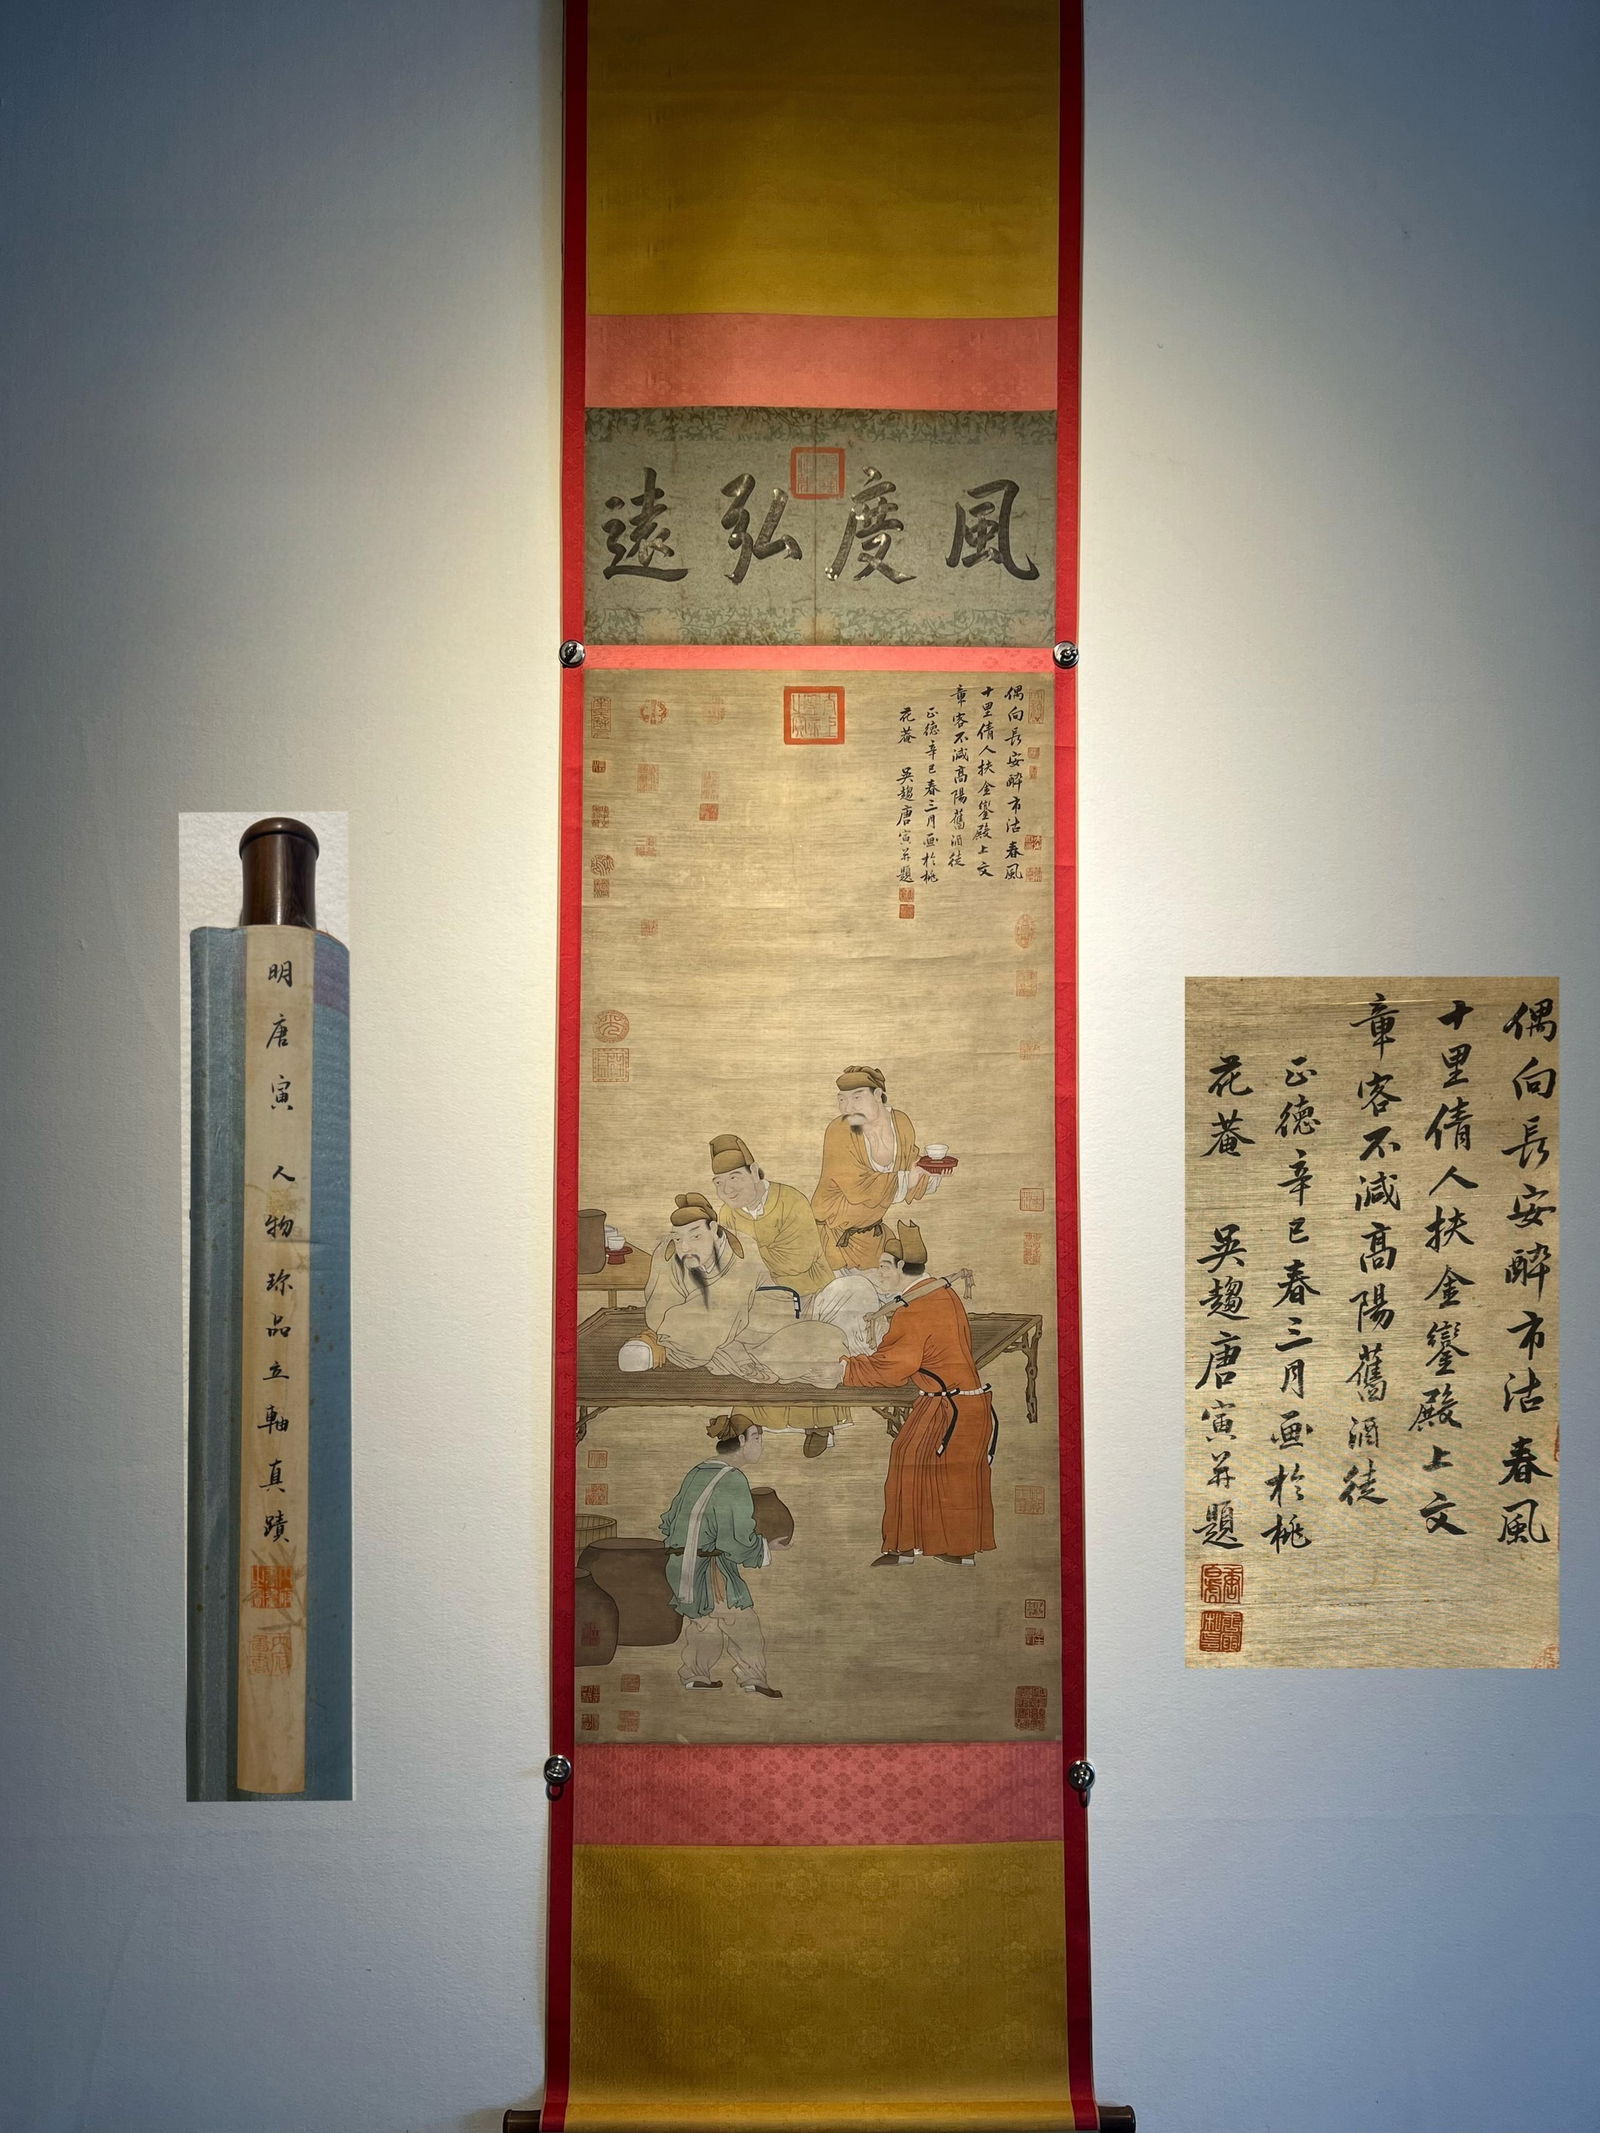 風度弘遠
偶向長安醉市沽春風
十里倩人扶金鑾殿上文
章客不減高陽舊酒徒
正德辛巳春三月画於桃
花菴 吳趨唐寅并題
明唐寅 人物珎品立軸真蹟
偶向長安醉市沽春風
十里倩人扶金鑾殿上文
章客不減高陽舊酒徒
正德辛巳春三月画於桃
花菴 吳趨唐寅并題